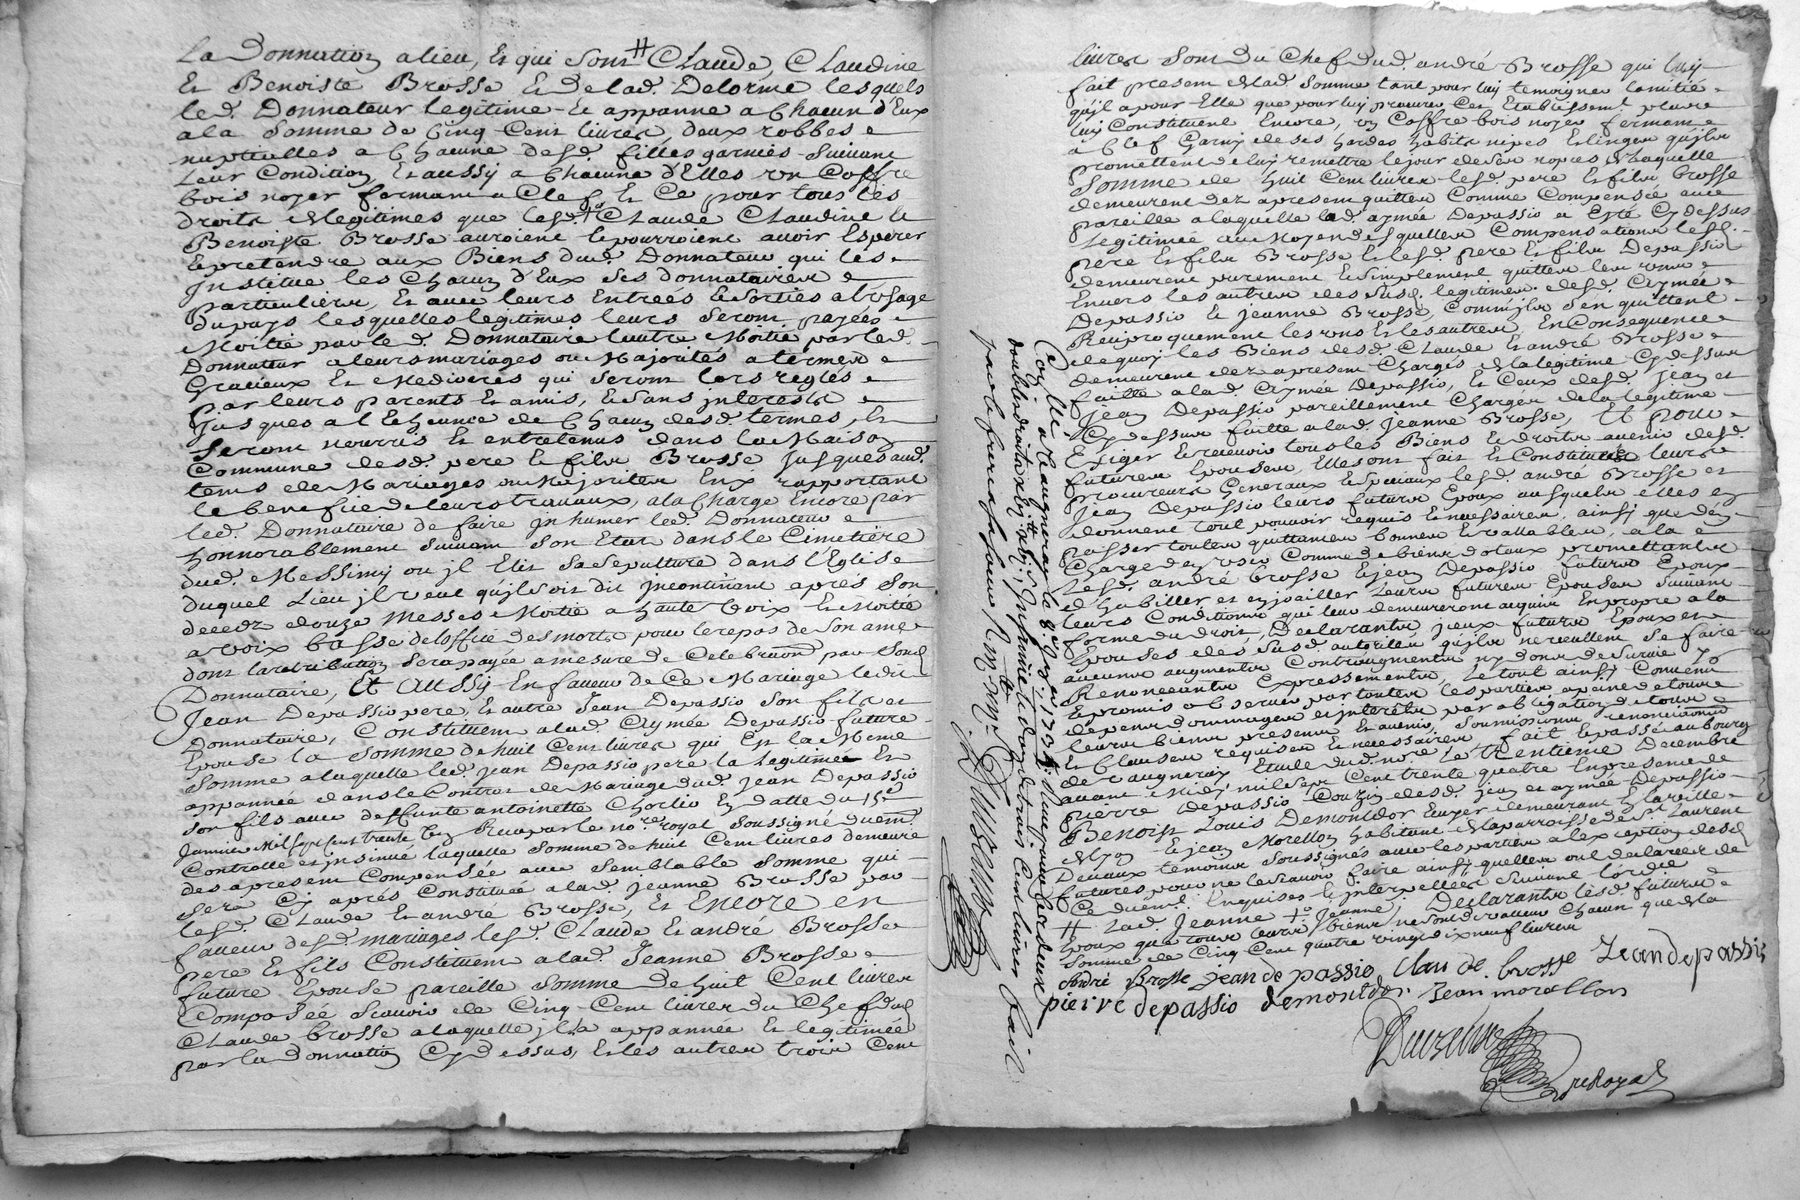 La Donnation a lieu, Et qui sont # Claude, Claudine
Et Benoiste Brosse Et de lad. Delorme lesquels
led. Donnateur legitime Et appanne a Chacun d'Eux
a la Somme de Cinq Cent livres, deux robbes
nuptiales a Chacune desd. filles garnies Suivant
Leur Condition Et aussy a Chacune d'Elles un Coffre
bois noyer fermant a Clef, Et Ce pour tous les
droits & legitimes que lesd. Claude Claudine &
Benoiste Brosse auroient & pourroient avoir Esperer
& pretendre aux Biens dud. Donnateur qui les
Institue les Chacun d'Eux Ses donnataires
particuliers, Et avec leurs Entrées & Sorties a l'usage
du pays lesquelles legitimes leurs Seront payées
Moitié par led. Donnataire lautre Moitié par led.
Donnateur a leurs mariages ou Majorités a termes
Gracieux Et Mediocres qui Seront lors reglés
par leurs parents Et amis, & Sans interests
Jusques a l'Echeance de Chacun desd. termes, Et
Seront nourris Et entretenus dans la Maison
Commune desd. pere & fils Brosse Jusques aud.
tems de Mariages ou Majorités Eux rapportant
le benefice de leurs travaux, a la Charge Encore par
led. Donnataire de faire Inhumer led. Donnateur
honnorablement Suivant Son Etat dans le Cimetiere
dud. Messimy ou il Elit Sa Sepulture dans l'Eglise
duquel Lieu il veut qu'il Soit dit Incontinent aprés Son
decedz douze Messes Moitié a haute voix Et Moitié
a voix basse de l'office des morts pour le repos de Son ame
dont la retribution Sera payée a mesure de Celebration par Sond.
Donnataire, Et Aussy En faveur de Ce Mariage ledit
Jean Depassio pere, Et autre Jean Depassio Son fils et
Donnataire, Constituent a lad. Aymée Depassio future
Epouse la Somme de huit Cent livres qui Est la Meme
Somme a laquelle led. Jean Depassio pere la Legitimée Et
appannée dans le Contrat de Mariage dud. Jean Depassio
Son fils avec deffunte antoinette Chorlio En datte du 15e
Janvier Mil Sept Cent trente Reçu par le no.re royal Soussigné duem.t
Controllé et insinué laquelle Somme de huit Cent livres demeure
des apresent Compensée avec Semblable Somme qui
Sera Cy aprés Constituée a lad. Jeanne Brosse par
lesd. Claude Et andré Brosse, Et Encore en
faveur desd. mariages lesd. Claude Et andré Brosse
pere & fils Constituent a lad. Jeanne Brosse
future Epouse pareille Somme de huit Cent livres
Composée Scavoir de Cinq Cent livres du Chef dud.
Claude brosse a laquelle il la appannée Et legitimée
par la donnation Cy dessus, & les autres trois Cent
livres Sont du Chef dud. andré Brosse qui luy
fait present de lad. Somme tant pour luy temoigner lamitié
qu'il a pour Elle que pour luy procurer Cet Etablissem.t plus
luy Constituent Encore, un Coffre bois noyer fermant
a Clef Garny de ses hardes habits nipes Et linges qu'ils
promettent de luy remettre le jour de Ses nopces de laquelle
Somme de huit Cent livres lesd. pere & fils Brosse
demeurent dez apresent quittes Comme Compensée avec
pareille a laquelle lad. aymée Depassio a Eté Cy dessus
Legitimée au Moyen desquelles Compensations lesd.
pere Et fils Brosse & lesd. pere & fils Depassio
demeurent purement & simplement quittes les uns
Envers les autres des Susd. legitimes desd. Aymée
Depassio & jeanne Brosse, Comme ils S'en quittent
Reciproquement les uns Et les autres, En Consequence
de quoy les Biens desd. Claude & andré Brosse
demeurent dez apresent Chargés de la legitime Cy dessus
faitte a lad. Aymée Depassio, Et Ceux desd. Jean et
Jean Depassio pareillement Chargés de la legitime
Cy dessus faitte a lad. Jeanne Brosse, Et pour
Exiger & recevoir tous les Biens & droits avenir desd.
futures Epouses, Elles ont fait & Constitués leurs
procureurs Generaux & Speciaux lesd. andré Brosse et
Jean Depassio leurs futurs Epoux ausquels elles en
donnent tout pouvoir requis & necessaires, ainsy que d'en
passer toutes quittances bonnes & vallables, a la
Charge den user Comme de biens dotaux promettants
Lesd. andré brosse & jean Depassio futurs Epoux
d'habiller et enjoailler leurs futures Epouses Suivant
leurs Conditions qui leur demeureront acquis En propre a la
forme du droit, Declarants jceux futurs Epoux et
Epouses des Susd. autorités qu'ils ne veullent Se faire
aucuns augments Contraugments ny dons de Survie
Renonceants Expressements, Le tout ainsy Convenu
& promis observer par toutes les parties a peine de tous
depens dommages et interets par obligation de tous
leurs biens presents Et avenir, Soumissions, renonciations
Et Clauses requises Et necessaires fait & passé au bourg
de Vaugneray, Etude dudit no.re Le Trentieme Decembre
avant Midy mil Sept Cent trente quatre En presence de
pierre Depassio Couzin desd. jean et aymée Depassio
Benoist Louis Demontdor Ecuyer demeurant
& jean Morellon habitant de la parroisse de S.t Laurent
Devaux temoins Soussignés avec les parties a lexception desd.
futures pour ne le Scavoir faire ainsy quelles ont declarées de
Ce duem.t Enquises & interpellées Suivant lord.ce
# Lad. Jeanne + Jeanne, Declarants lesd. futurs
Epoux que tous leurs biens ne Sont de valleur Chacun que de la
Somme de Cinq Cent quatre vingt dix neuf livres
andré Brosse jean depassio Claude brosse Jean depassio
pierre depassio demontdor Jean morellon
no.re Royal
Con.llé a Vaugneray le 8.e 1735
par le